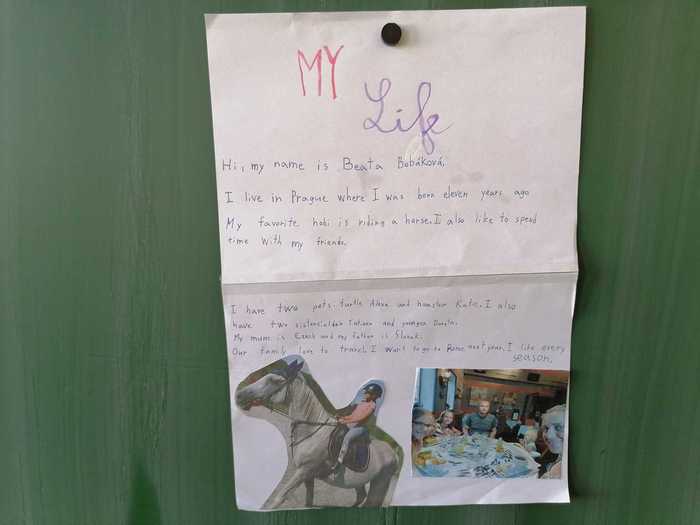 MY
Life
Hi, my name is Beata Bobáková.
I live in Prague where I was born eleven years ago
My favorite hobi is riding a horse. I also like to spend
time with my friends.
I have two pets: turtle Alexa and hamster Katie. I also
have two sisters: older Tatiana and younger
My mum is Czech and my father is Slovak.
Our family love to travel. I want to go to Rome next year. I like every
season.